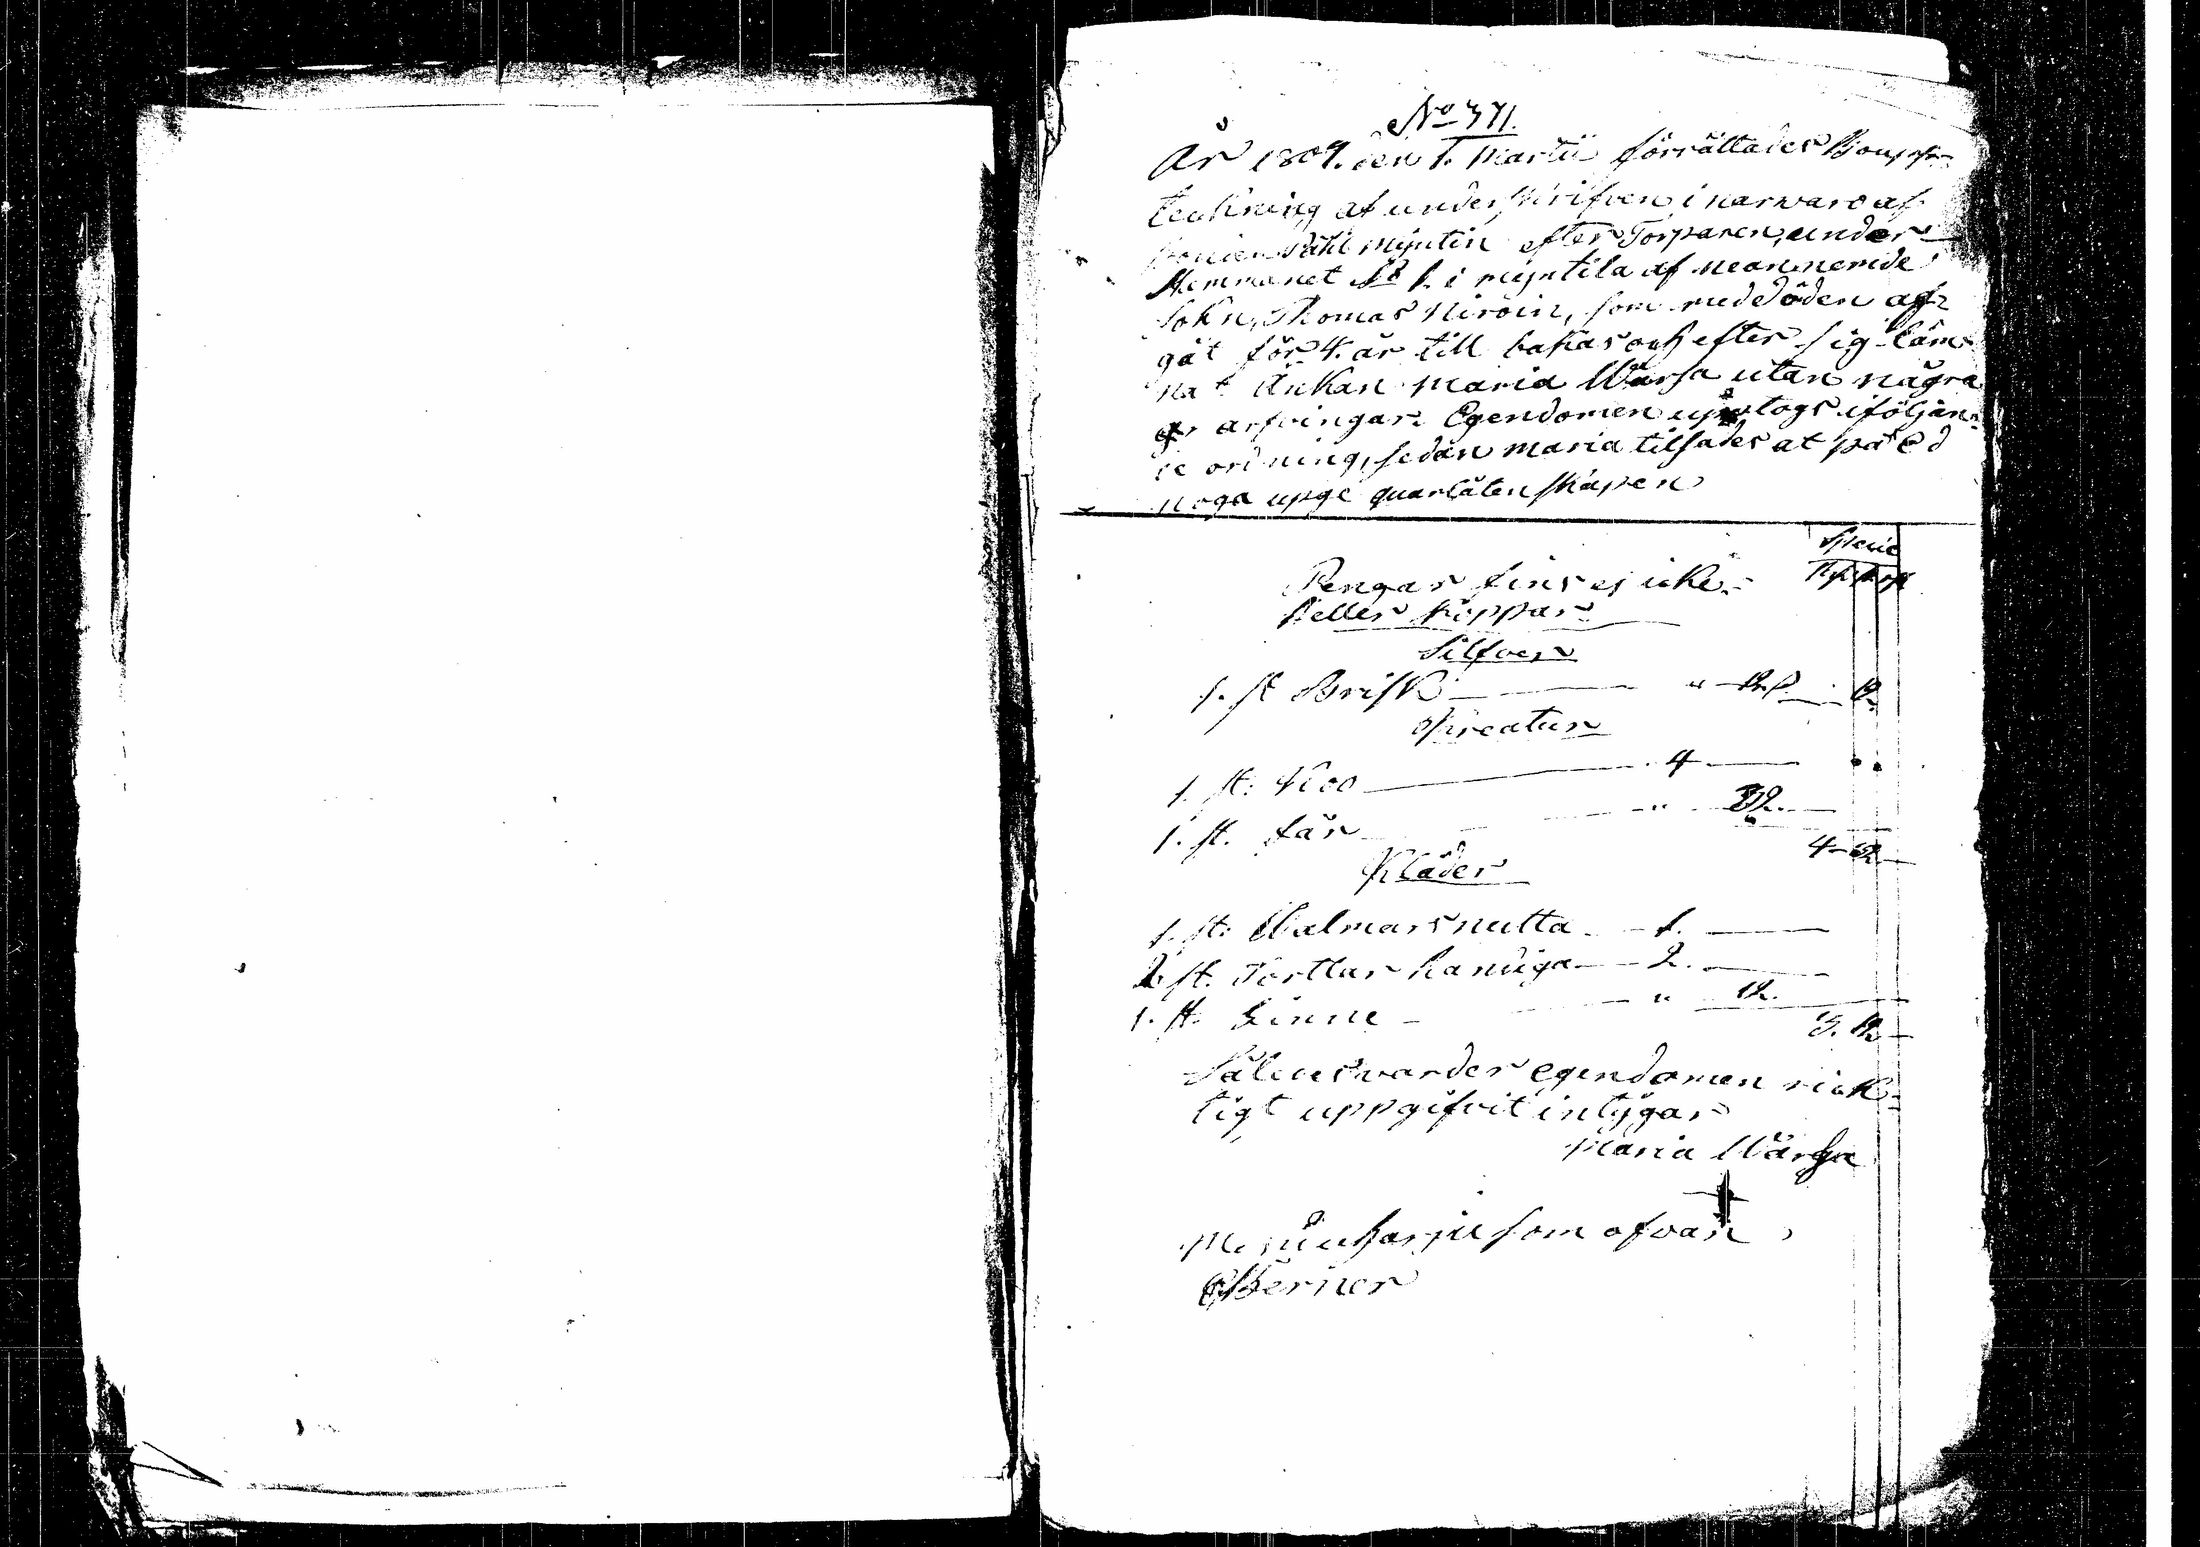 No 371.
År 1809. den 1. Martii förrättades Boupp-
teckning af underskrifven i närwaro af
Påhl Mynttin efter Torparen under
Hemmanet No 1. i Myntila af neannemde
Sokn, Thomas Niroin, som med döden af-
gåt för 4. år till bakas och efter sig läm-
nat Änkan Maria Wärja utan några
arfvingar. Egendomen upptogs i följan-
de ordning, sedan Maria tilsades at på Ed
noga upge quarlåtenskapen
Specie
Pengar fins ej icke
heller Koppar
Silfver
1. st Brisk — " 12. — 12.
Kreatur
1. st: Koo — 4 —
1. st. får — " 32. —
4 32
Kläder
1. st: Walmars nutta — 1. —
2 st. Förklar handiga — 2. —
1. st. Linne — " 12.
3. 12
Således warder egendomen rick-
tigt uppgifvit intygar
Maria Wärja
som ofvan
Berner